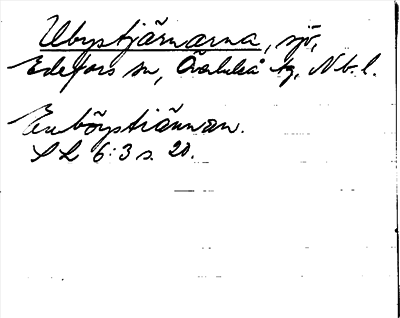 Ubystjärnarna, sjö,
Edefors sn, Överluleå tg, Nb. l.
Enböystiännan.
SL 6:3 s. 20.